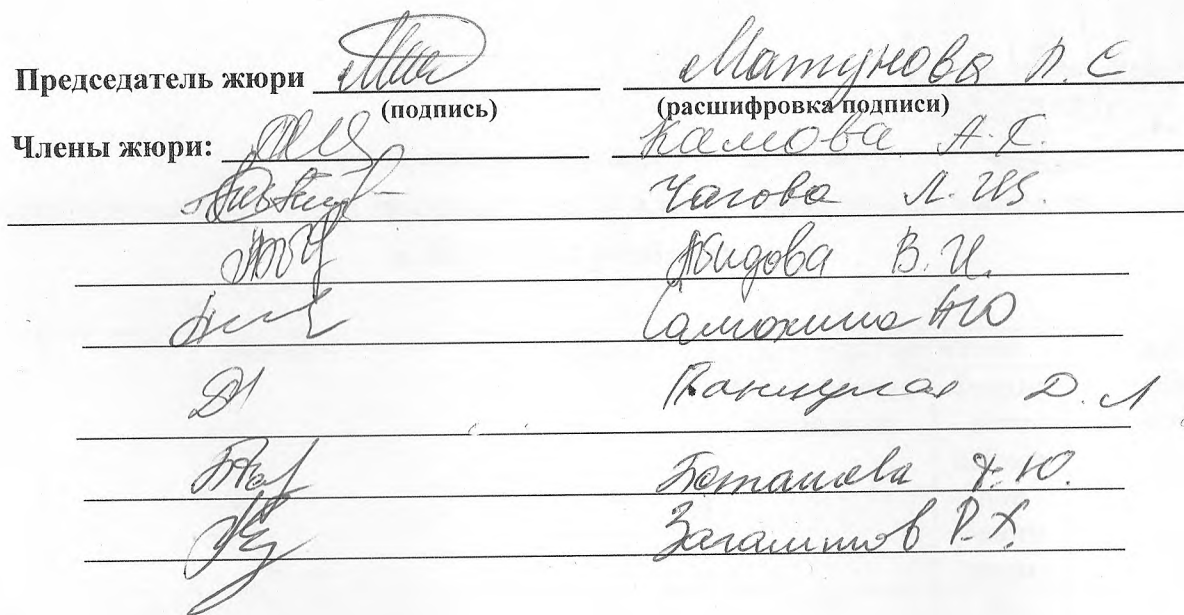 Председатель жюри Матунова Л. С
(подпись) (расшифровка подписи)
Члены жюри: Камова А. Г.
Чагова Л. И.
Абидова В. И.
Самохина Ю
Д. Л
Боташева Х. Ю.
Загаштов Р. Х.